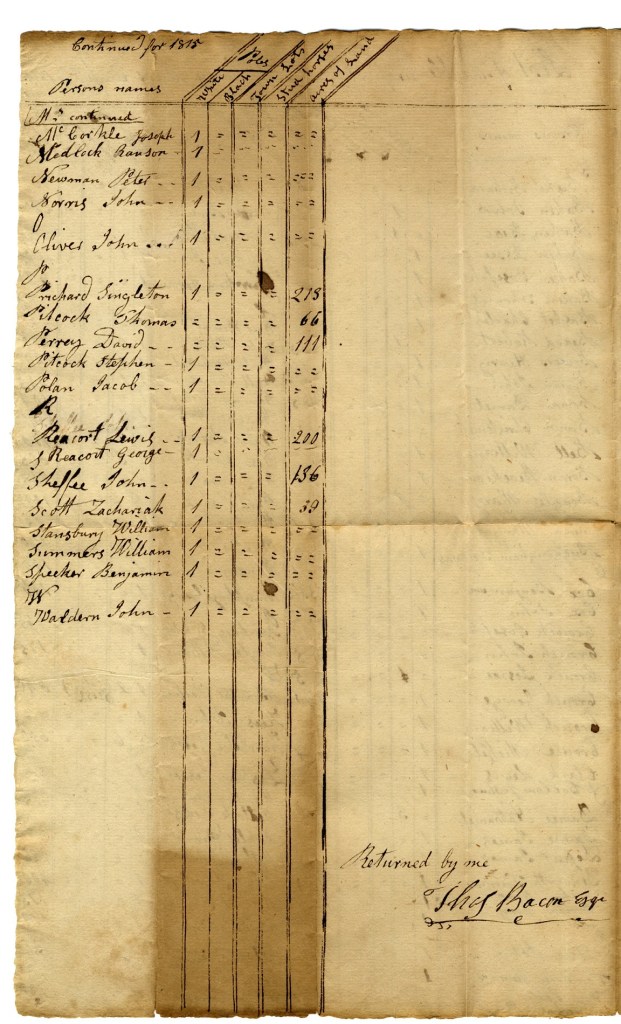 Continued for 1815
Persons names White Polls Black Town Lots Stud horses acres of Land
M: continued
Mc Corkle Joseph 1 = = = = =
Medlock Ranson 1 = = = = =
Newman Peter 1 = = = = =
Norris John 1 = = = = =
O
Oliver John 1 = = = = =
P
Prichard Singleton 1 = = = 218
Pitcock Thomas = = = = 66
Perrey David = = = = 111
Pitcock Stephen 1 = = = = =
Polan Jacob 1 = = = = =
R
Reacort Lewis 1 = = = 200
S Reacort George 1 = = = = =
Sheffee John 1 = = = 136
Scott Zachariah 1 = = = 39
Stansbury William 1 = = = = =
Summers William 1 = = = = =
Specker Benjamin 1 = = = = =
W
Waldern John 1 = = = = =
Returned by me
Thos Bacon Esqr